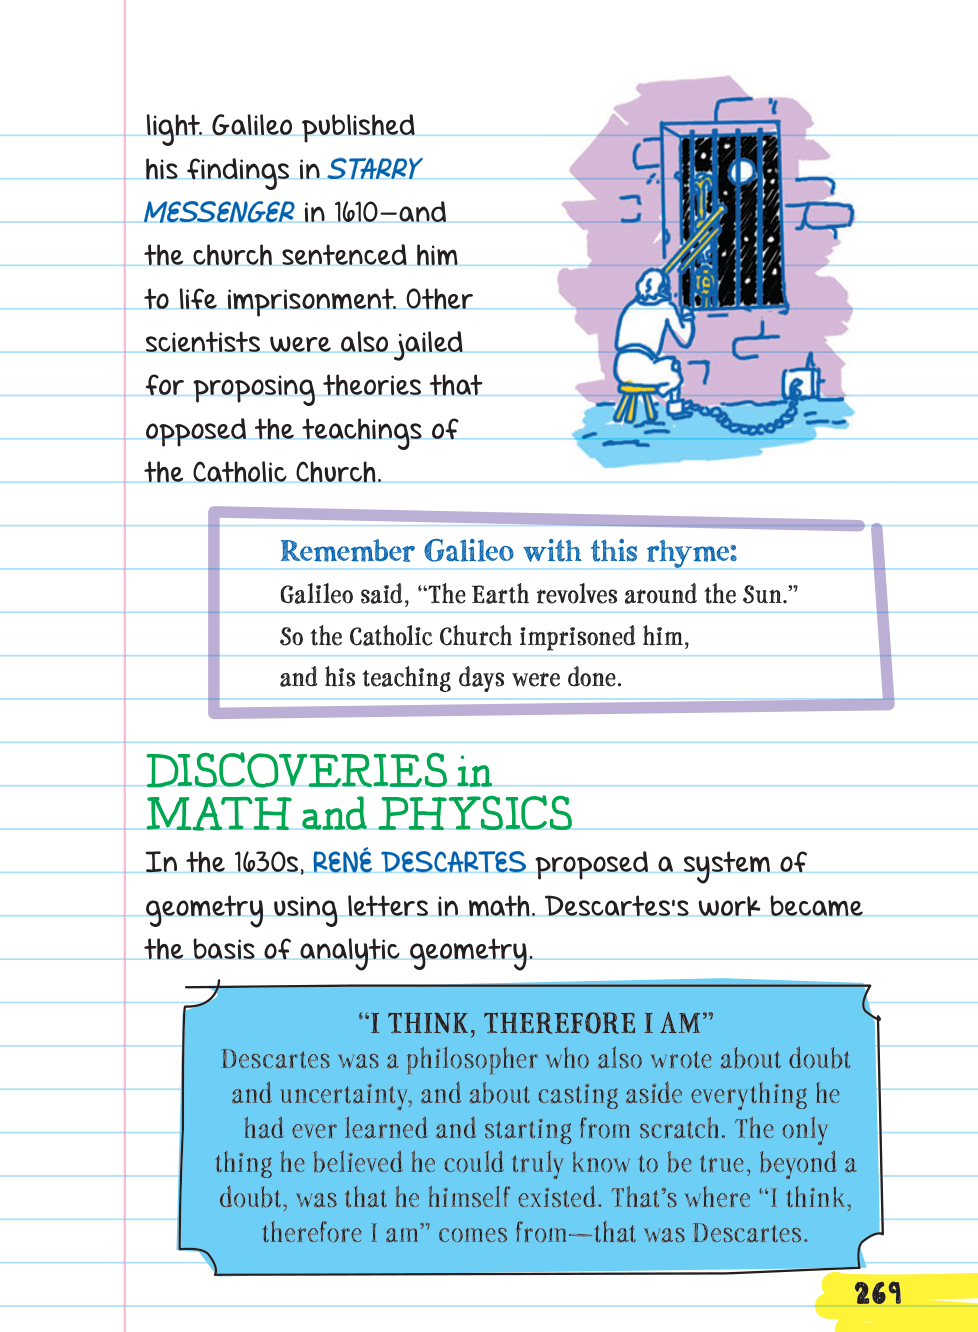 light. Galileo published
his findings in STARRY
MESSENGER in 1610—and
the church sentenced him
to life imprisonment. Other
scientists were also jailed
for proposing theories that
opposed the teachings of
the Catholic Church.
Remember Galileo with this rhyme:
Galileo said, “The Earth revolves around the Sun.”
So the Catholic Church imprisoned him,
and his teaching days were done.
DISCOVERIES in
MATH and PHYSICS
In the 1630s, RENÉ DESCARTES proposed a system of
geometry using letters in math. Descartes's work became
the basis of analytic geometry.
“I THINK, THEREFORE I AM”
Descartes was a philosopher who also wrote about doubt
and uncertainty, and about casting aside everything he
had ever learned and starting from scratch. The only
thing he believed he could truly know to be true, beyond a
doubt, was that he himself existed. That’s where “I think,
therefore I am” comes from—that was Descartes.
269